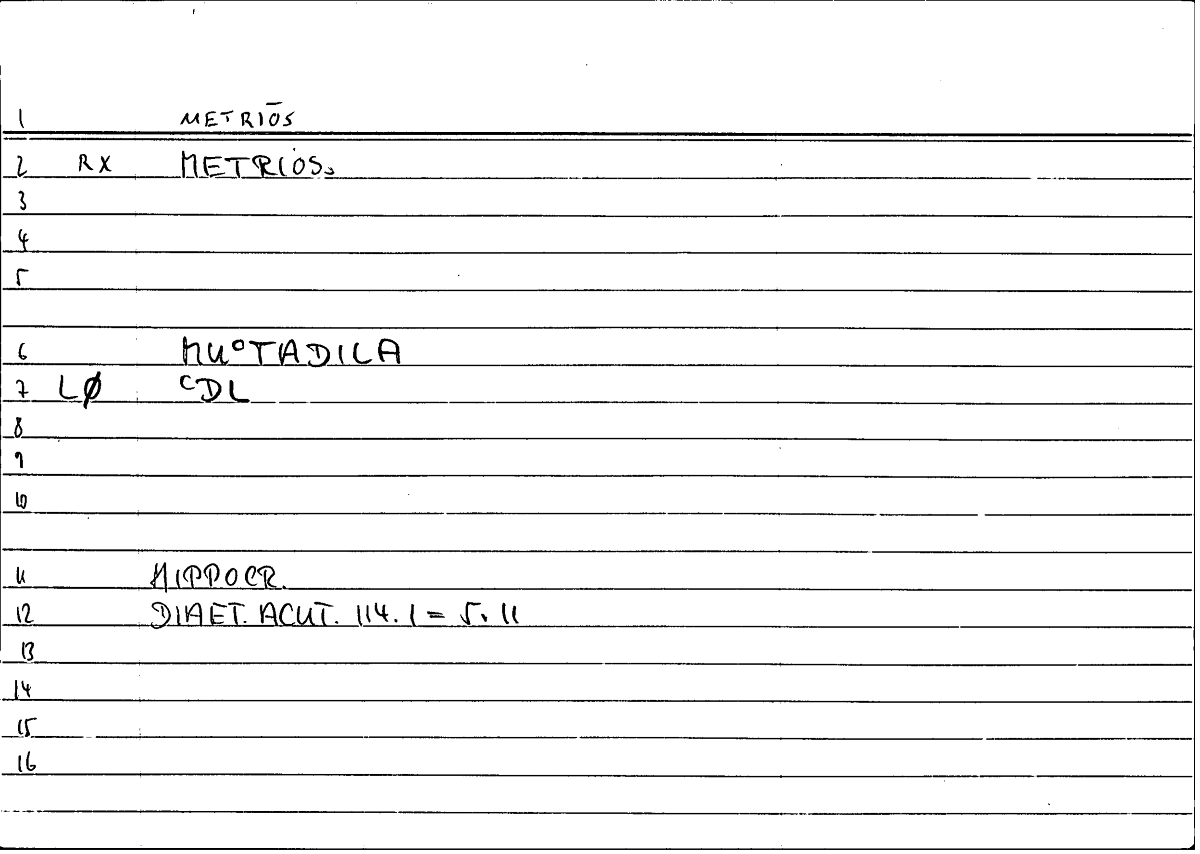 1 METRIŌS
2 RX METRIOS.
3
4
5
6 MUᵒTADILA
7 LØ ᶜDL
8
9
10
11 HIPPOCR.
12 DIAET. ACUT. 114.1 = 5.11
13
14
15
16